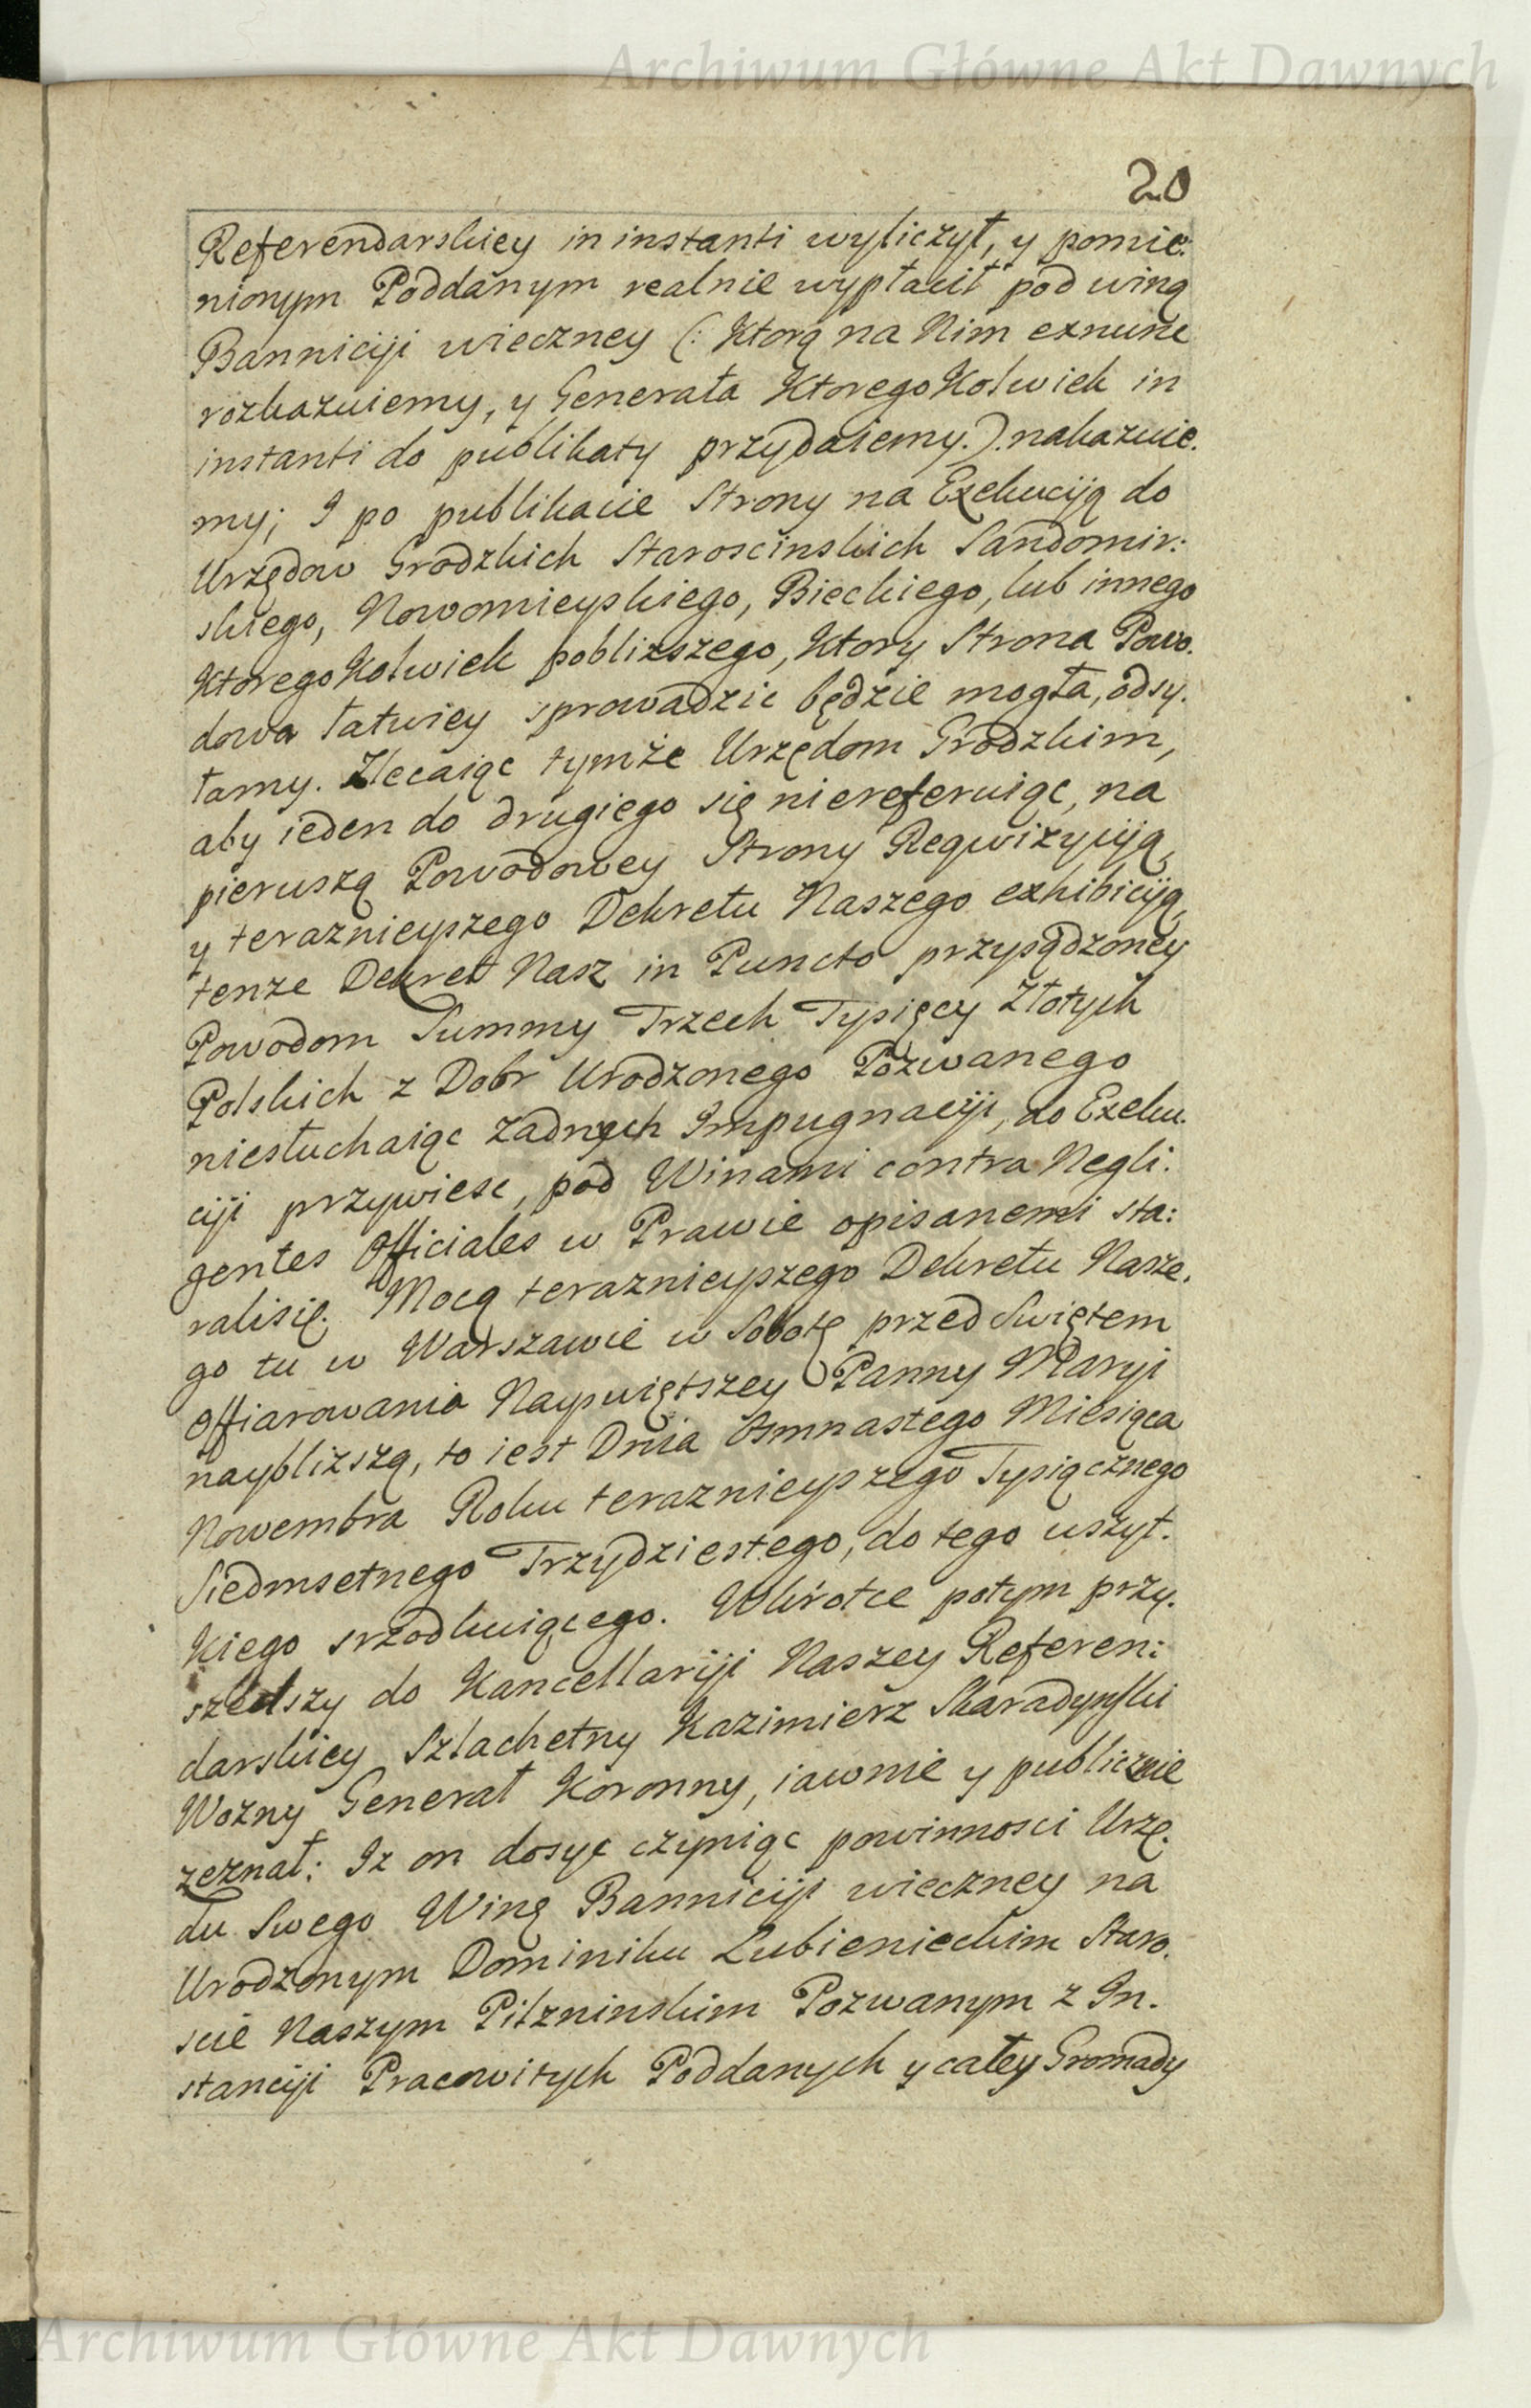 Archiwum Główne Akt Dawnych
20
Referendarskiey in instanti wyliczył, y pomie:
nionym Poddanym realnie wypłacił pod winą
Banniciji wieczney (: Ktorą na Nim exnunc
rozkazuiemy, y Generała KtoregoKolwiek in
instanti do publikaty przydaiemy.). nakazuie.
my; I po publikacie Strony na Exekuciją do
Urzędow Grodzkich Staroscinskich Sandomir:
skiego, Nowomieyskiego, Bieckiego, lub innego
KtoregoKolwiek pobliższego, Ktory Strona Powo.
dowa łatwiey sprowadzic będzie mogła, odsy.
łamy. Zlecaiąc tymże Urzędom Grodzkim,
aby ieden do drugiego się niereferuiąc, na
pierwszą Powodowey Strony Reqwizyciją,
y teraznieyszego Dekretu Naszego exhibiciją,
tenze Dekret Nasz in Puncto przysądzoney
Powodom Summy Trzech Tysięcy Złotych
Polskich z Dobr Urodzonego Pozwanego
niesłuchaiąc żadnych Impugnaciji, do Exeku.
ciji przywiesc, pod Winami contra Negli:
gentes Officiales w Prawie opisanemi sta:
ralisię. Mocą teraznieyszego Dekretu Nasze.
go tu w Warszawie w Sobotę przed Swiętem
Offiarowania Nayswiętszey Panny Maryi
naybliższą, to iest Dnia Osmnastego Miesiąca
Nowembra Roku teraznieyszego Tysiącznego
Siedmsetnego Trzydziestego, do tego uszyt.
Kiego srzodkuiącego. Wkrotce potym przy.
szedszy do Kancellariji Naszey Referen:
darskiey Szlachetny Kazimierz Skaradynski
Wozny Generał Koronny, iawnie y publicznie
zeznał: Iz on dosyc czyniąc powinnosci Urzę.
du Swego Winę Banniciji wieczney na
Urodzonym Dominiku Lubienieckim Staro.
scie Naszym Pilzninskim Pozwanym z In.
stanciji Pracowitych Poddanych y całey Gromady
Archiwum Główne Akt Dawnych